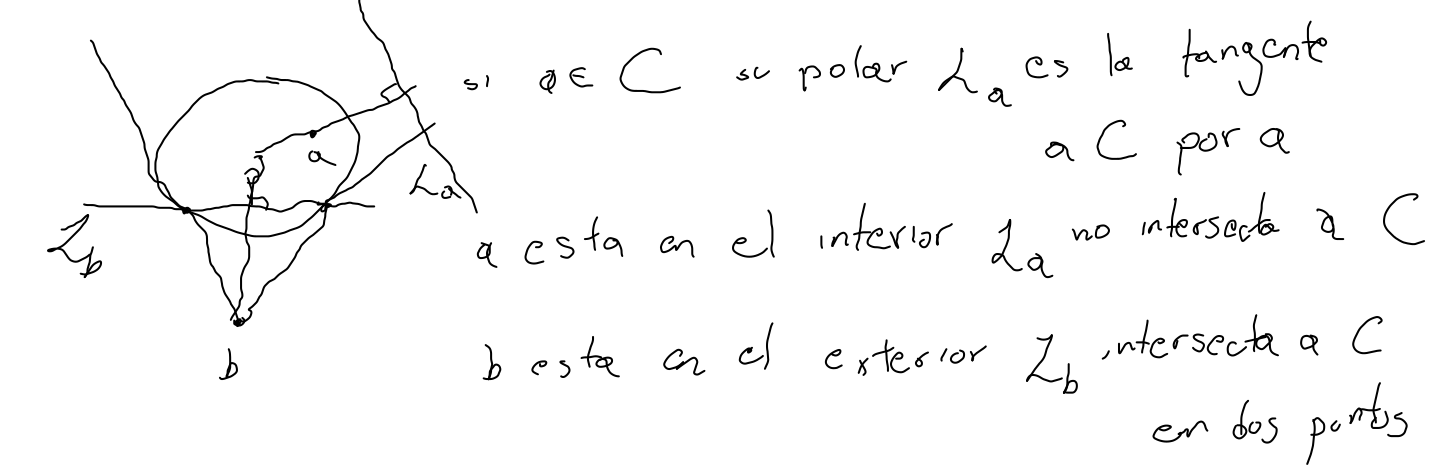 si a ∈ C su polar ℒa es la tangente
a C por a
a esta en el interior ℒa no intersecta a C
b esta en el exterior ℒb intersecta a C
en dos puntos
a
ℒa
ℒb
b